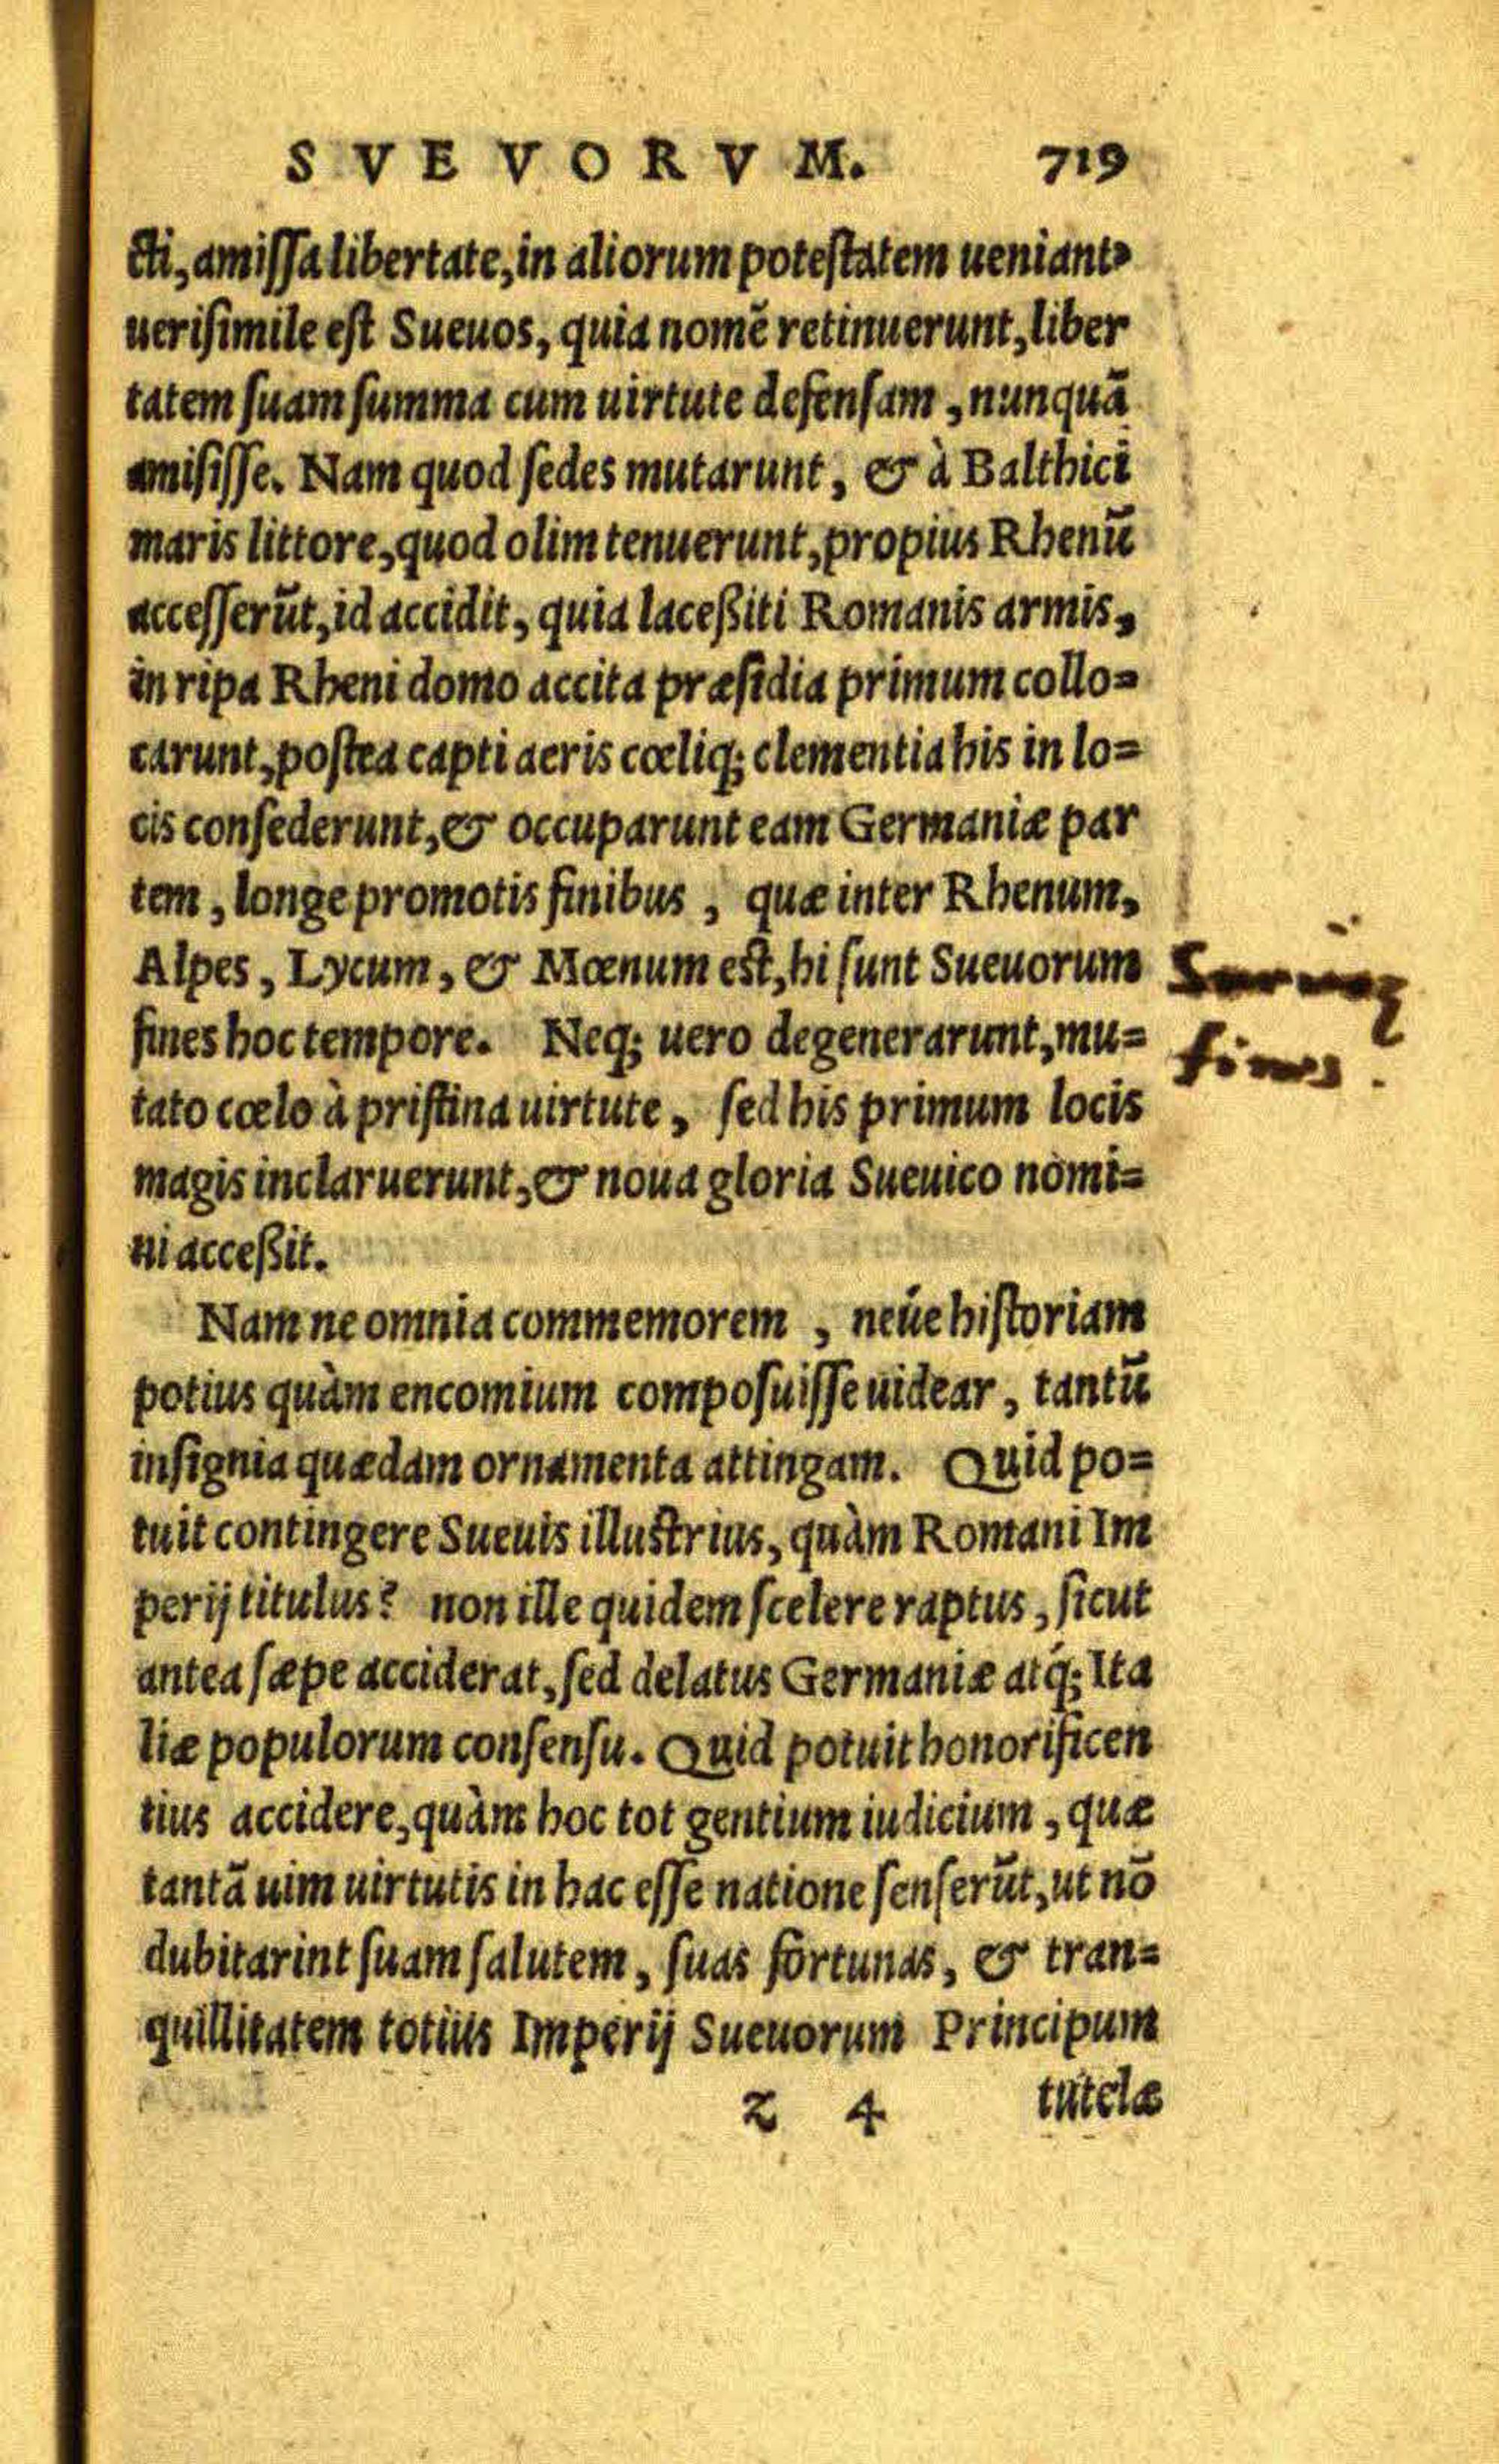 SVEVORVM. 719
cti, amissa libertate, in aliorum potestatem ueniant,
uerisimile est Sueuos, quia nomẽ retinuerunt, liber
tatem suam summa cum uirtute defensam, nunquã
amisisse. Nam quod sedes mutarunt, & à Balthici
maris littore, quod olim tenuerunt, propius Rhenũ
accesserũt, id accidit, quia laceßiti Romanis armis,
in ripa Rheni domo accita præsidia primum collo=
carunt, postea capti aeris cœliq; clementia his in lo=
cis consederunt, & occuparunt eam Germaniæ par
tem, longe promotis finibus, quæ inter Rhenum,
Alpes, Lycum, & Mœnum est, hi sunt Sueuorum
fines hoc tempore. Neq; uero degenerarunt, mu=
tato cœlo à pristina uirtute, sed his primum locis
magis inclaruerunt, & noua gloria Sueuico nomi=
ni acceßit.
Nam ne omnia commemorem, neúe historiam
potius quàm encomium composuisse uidear, tantũ
insignia quædam ornamenta attingam. Quid po=
tuit contingere Sueuis illustrius, quàm Romani Im
perij titulus? non ille quidem scelere raptus, sicut
antea sæpe acciderat, sed delatus Germaniæ atq́; Ita
liæ populorum consensu. Quid potuit honorificen
tius accidere, quàm hoc tot gentium iudicium, quæ
tantã uim uirtutis in hac esse natione senserũt, ut nõ
dubitarint suam salutem, suas fortunas, & tran=
quillitatem totius Imperij Sueuorum Principum
z 4 tutelæ
fines.